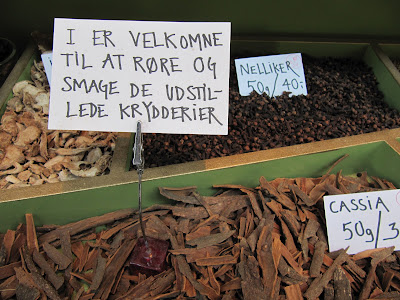 I ER VELKOMNE
TIL AT RØRE OG
SMAGE DE UDSTIL-
LEDE KRYDDERIER
NELLIKER
50g/40:-
CASSIA
50g/